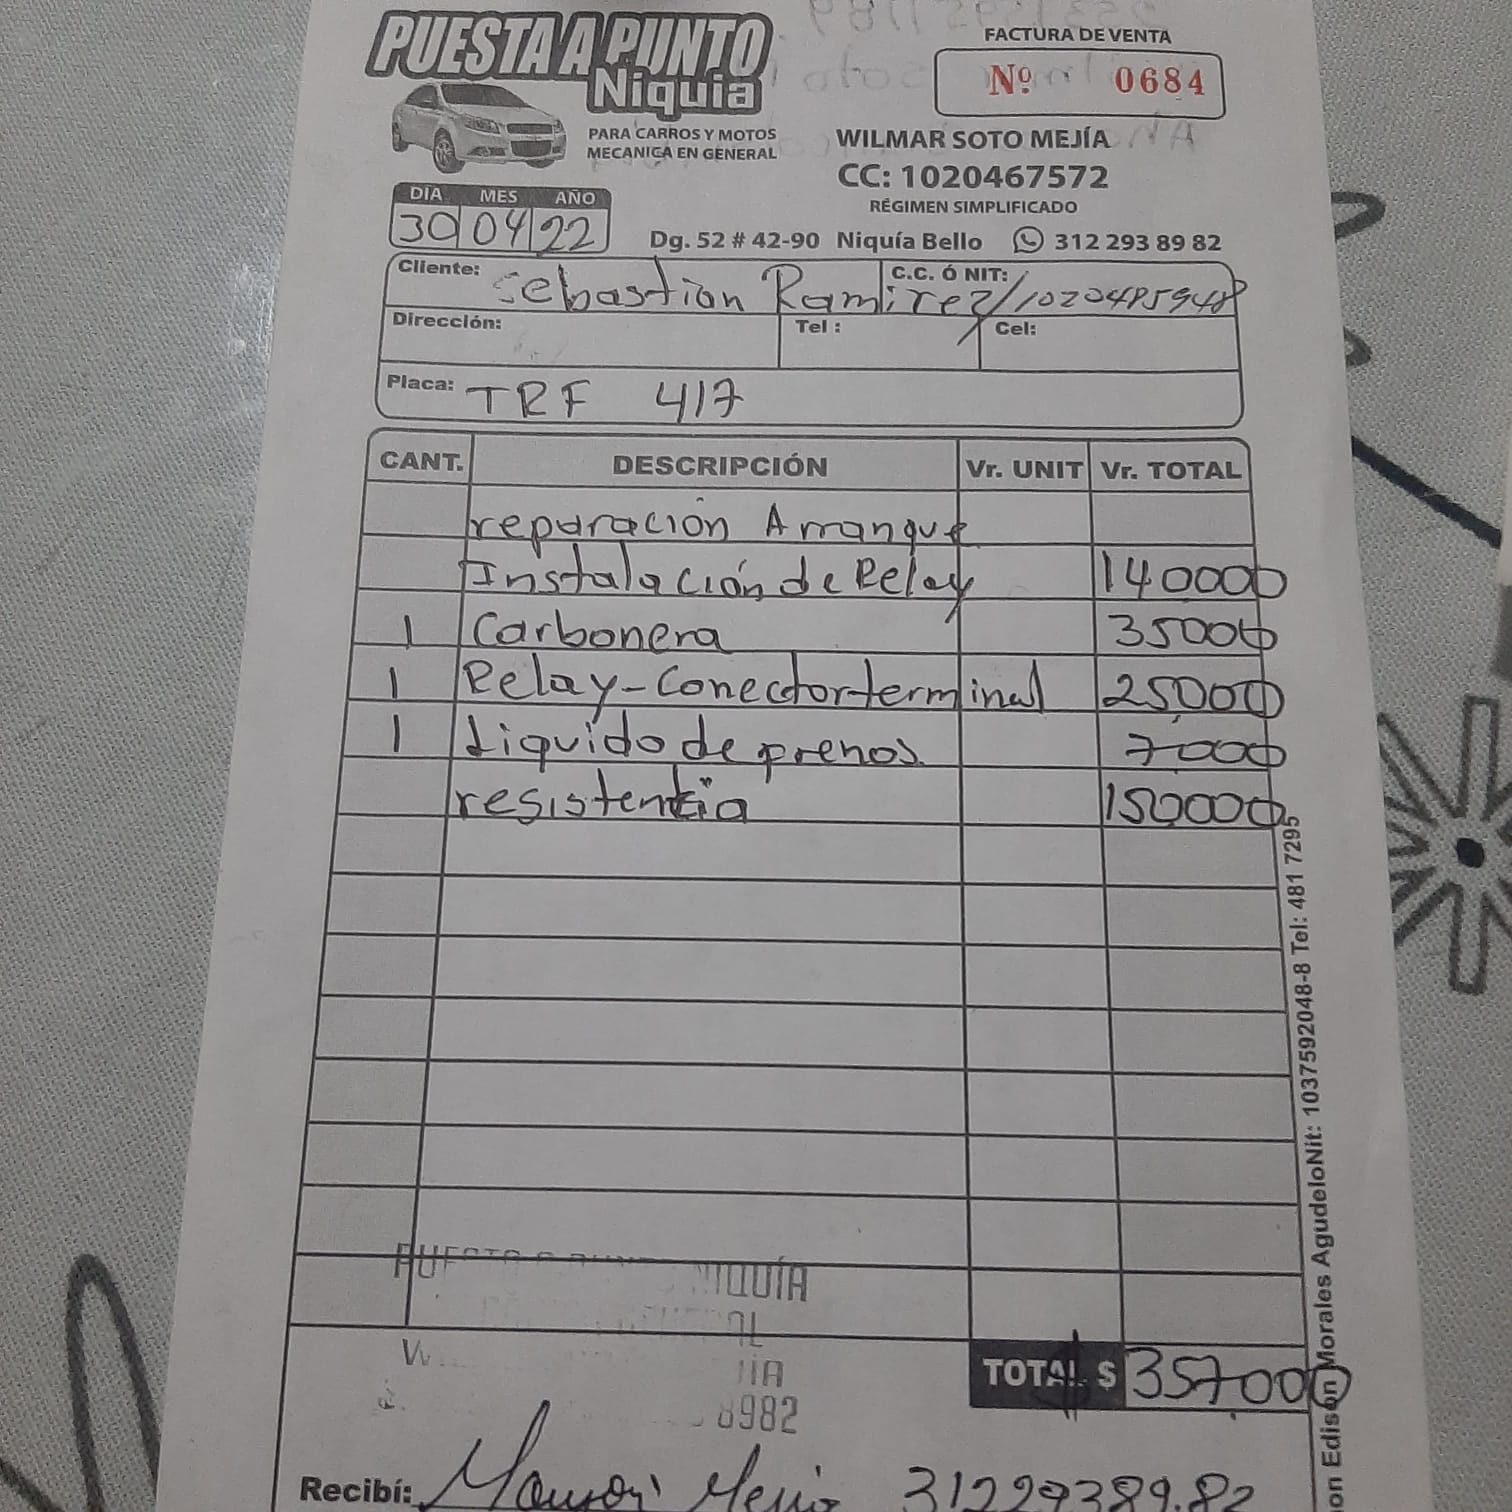 PUESTA A PUNTO
Niquia
PARA CARROS Y MOTOS
MECANICA EN GENERAL
FACTURA DE VENTA
Nº 0684
WILMAR SOTO MEJÍA
CC: 1020467572
RÉGIMEN SIMPLIFICADO
DIA MES AÑO
30 04 22
Dg. 52 # 42-90 Niquía Bello 312 293 89 82
Cliente: Sebastian Ramirez C.C. Ó NIT: 1020485948
Dirección: Tel : Cel:
Placa: TRF 417
CANT. DESCRIPCIÓN Vr. UNIT Vr. TOTAL
reparación Arranque
Instalación de Relay 140000
1 Carbonera 35000
1 Relay-Conector-terminal 25000
1 Liquido de prenos. 7000
resistencia 150000
NIQUÍA
8982
TOTAL $ 357.000
Recibí: 31229389.82
Edison Morales Agudelo Nit: 1037592048-8 Tel: 481 7295